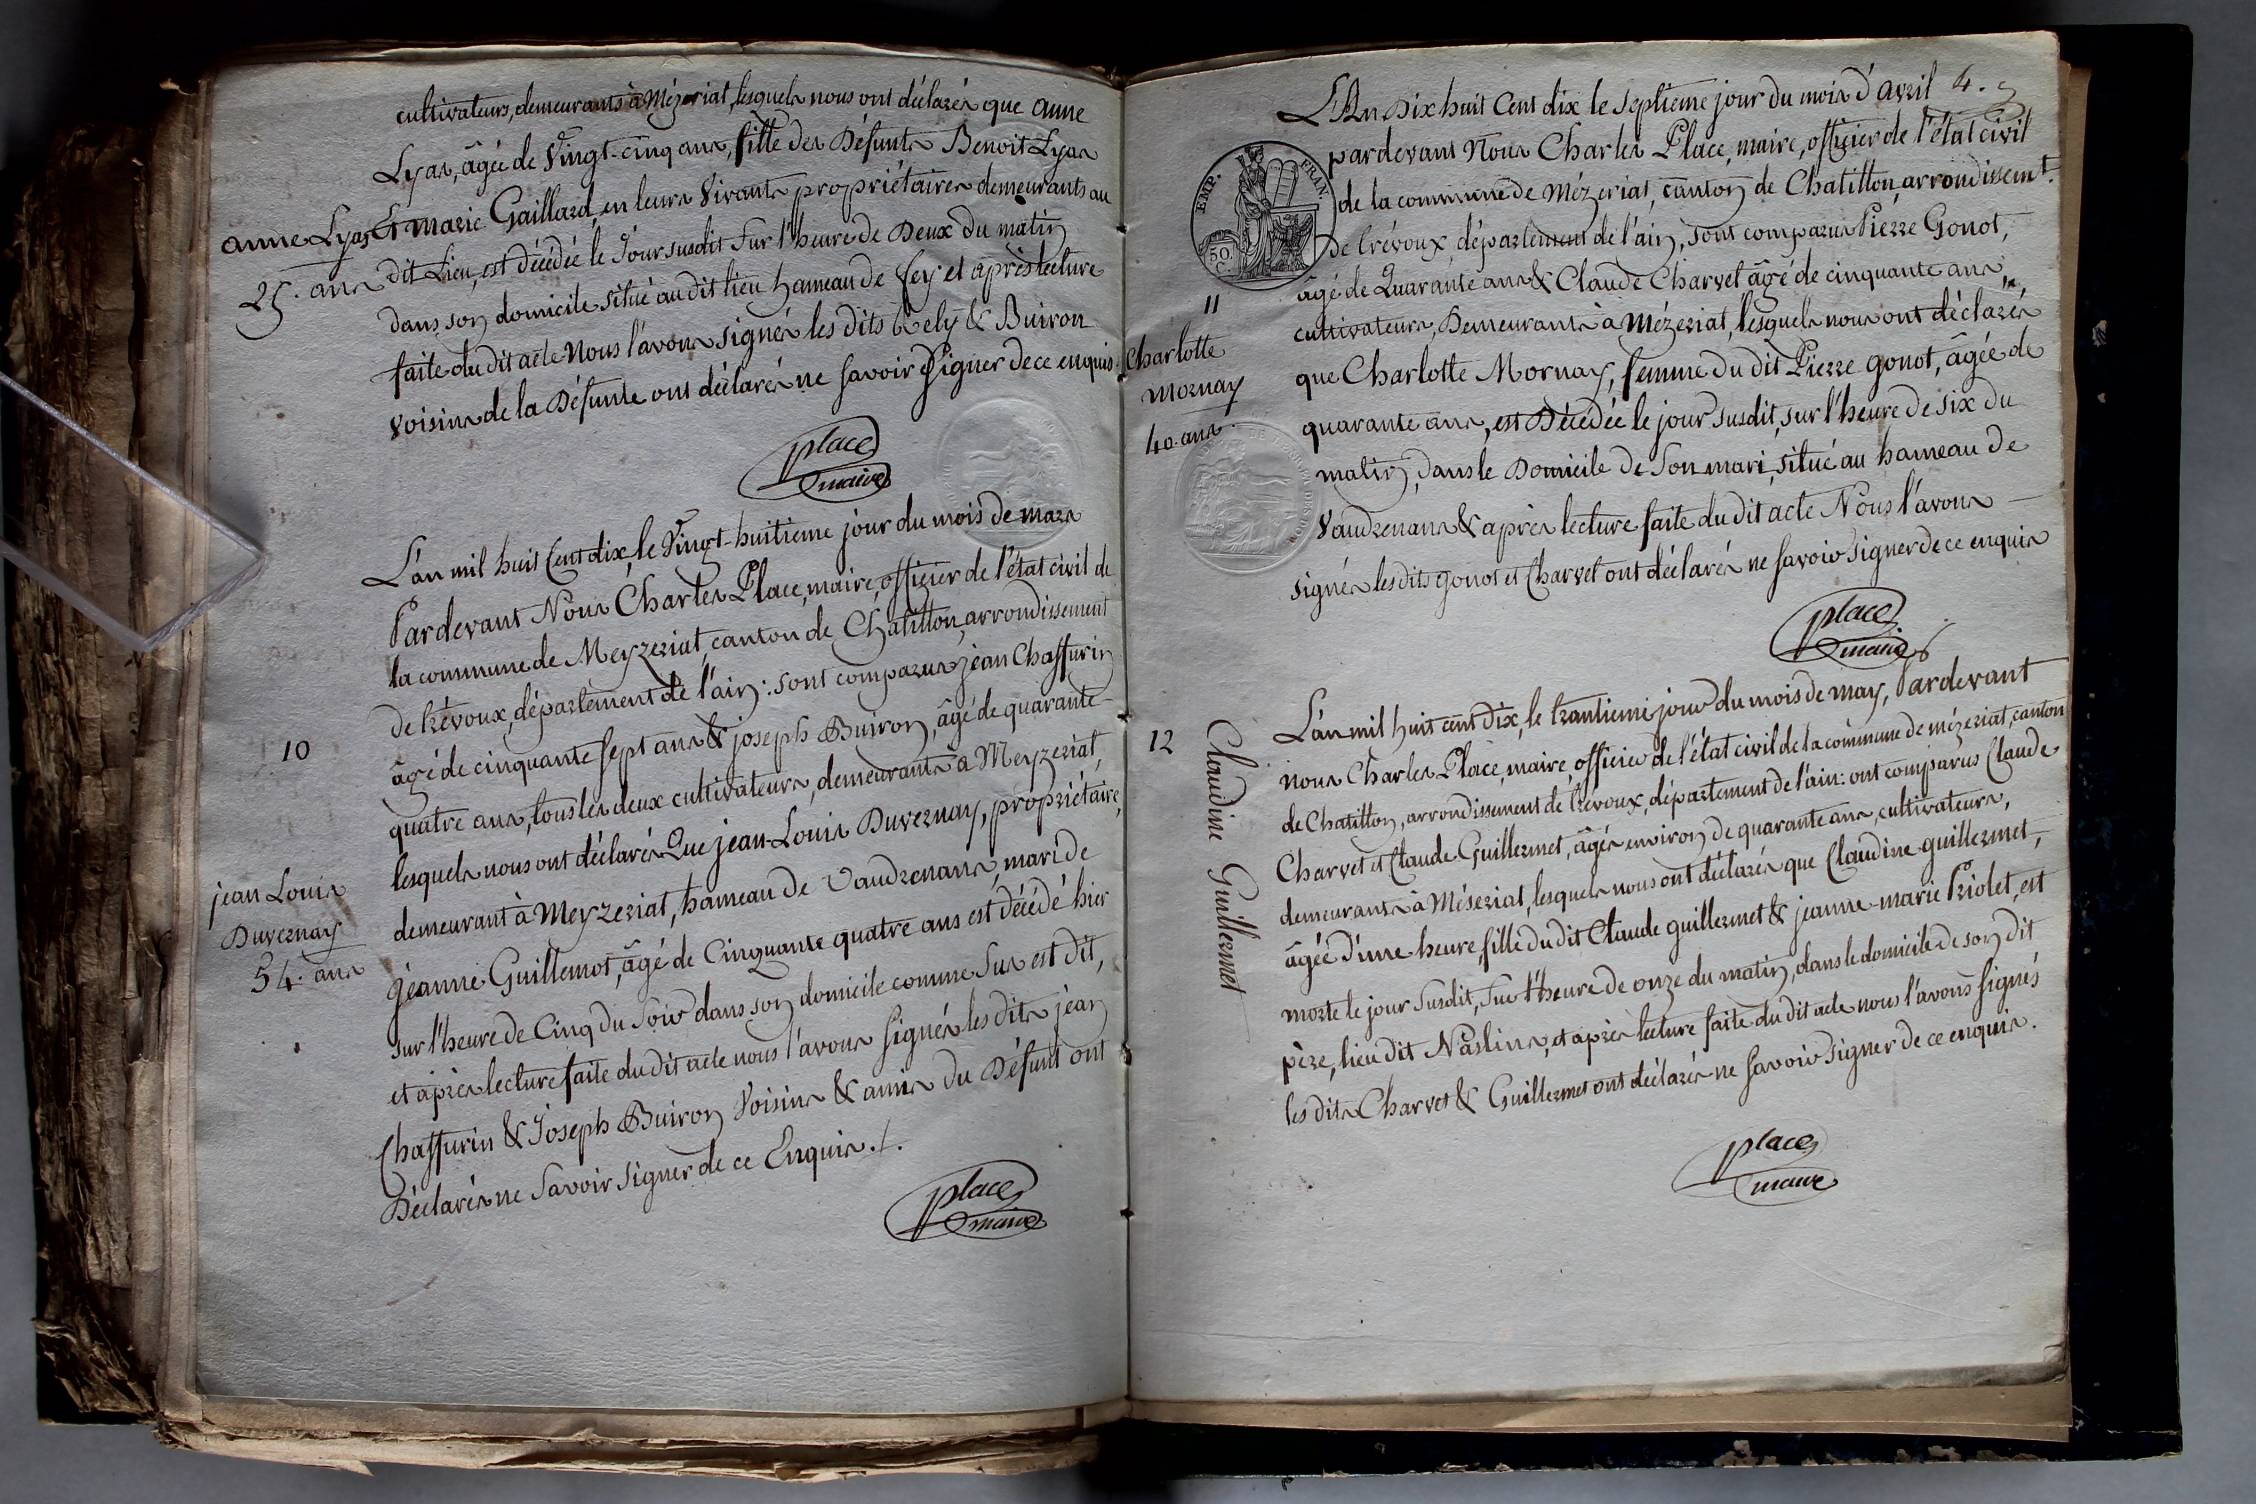 cultivateurs, demeurants à Mézeriat, lesquels nous ont déclarés que anne
Lyas, âgée de Vingt-cinq ans, fille des Défunts Benoit Lyas
anne Lyas
25. ans
et marie Gaillard, en leurs Vivants propriétaires demeurants au
dit Lieu, est décédée le Jour susdit sur l'heure de Deux du matin
dans son domicile situé au dit lieu hameau de fey et après lecture
faite du dit acte Nous l'avons signés les dits Bely & Buiron
voisins de la Défunte ont déclarés ne savoir Signer de ce enquis
place
maire
L'an mil huit Cent dix, le Vingt-huitieme jour du mois de mars
Pardevant Nous Charles Place, maire, officier de l'état civil de
la commune de Meyzeriat, canton de Chatillon, arrondissement
de Trévoux, département de l'ain: sont comparus jean Chaffurin
10
âgé de cinquante sept ans & joseph Buiron, âgé de quarante-
quatre ans, tous les deux cultivateurs, demeurants à Meyzeriat,
lesquels nous ont déclarés Que jean-Louis Duvernay, propriétaire,
jean Louis
Duvernay
54. ans
demeurant à Meyzeriat, hameau de Vaudrenans, mari de
jéanne Guillemot, âgé de Cinquante quatre ans est décédé hier
sur l'heure de Cinq du Soir dans son domicile comme Sus est dit,
et après lecture faite du dit acte nous l'avons signés les dits jean
Chaffurin & Joseph Buiron Voisins & amis du Défunt ont
Déclarés ne Savoir Signer de ce Enquis ./.
place
maire
4.
L'An Dix huit Cent dix le Septième jour du mois d'avril
pardevant Nous Charles Place, maire, officier de l'état civil
de la commune de Mézeriat, canton de Chatillon, arrondissemt.
de Trévoux, département de l'ain, sont comparus Pierre Gonot,
EMP. FRAN.
50.
C.
11
Charlotte
mornay
40. ans
âgé de Quarante ans & Claude Charvet âgé de cinquante ans,
cultivateurs, Demeurants à Mézeriat, lesquels nous ont déclarés
que Charlotte Mornay, femme du dit Pierre gonot, âgée de
quarante ans, est Décédée le jour susdit, sur l'heure de six du
matin, dans le Domicile de Son mari, situé au hameau de
Vaudrenans & après lecture faite du dit acte Nous l'avons
signés les dits gonot et Charvet ont déclarés ne savoir signer de ce enquis
place
maire
12
Claudine Guillermet
L'an mil huit cent dix, le trantieme jour du mois de may, Pardevant
nous Charles Place, maire, officier de l'état civil de la commune de mézeriat, canton
de Chatillon, arrondissement de trévoux, département de l'ain: ont comparus Claude
Charvet et Claude Guillermet, âgés environ de quarante ans, cultivateurs,
demeurants à Méseriat, lesquels nous ont déclarés que Claudine guillermet,
âgée d'une heure, fille du dit Claude guillermet & jeanne-marie Priolet, est
morte le jour Susdit, sur l'heure de onze du matin, dans le domicile de son dit
père, lieu dit Naslins, et après lecture faite du dit acte nous l'avons signés
les dits Charvet & Guillermet ont déclarés ne savoir signer de ce enquis.
place
maire